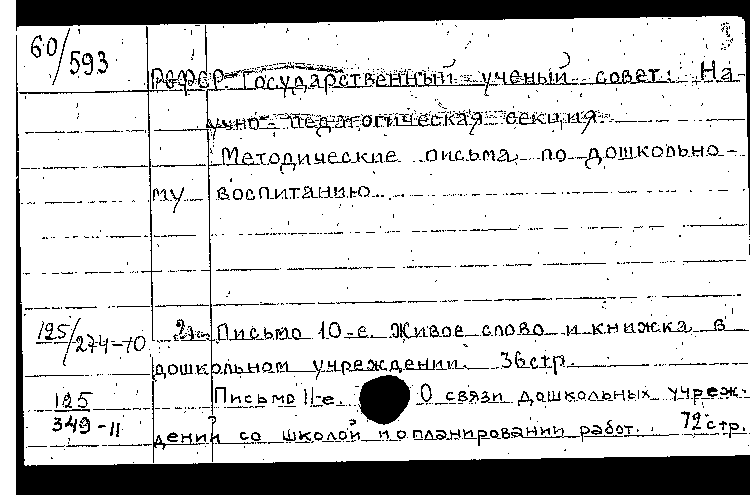 60/593
РСФСР. Государственный ученый совет. На-
учно-педагогическая секция.
Методические письма по дошкольно-
му воспитанию.
125/274-10 Письмо 10-е. Живое слово и книжка в
дошкольном учреждении. 36 стр.
125/349-11 Письмо 11-е. О связи дошкольных учреж-
дений со школой и о планировании работ. 72 стр.